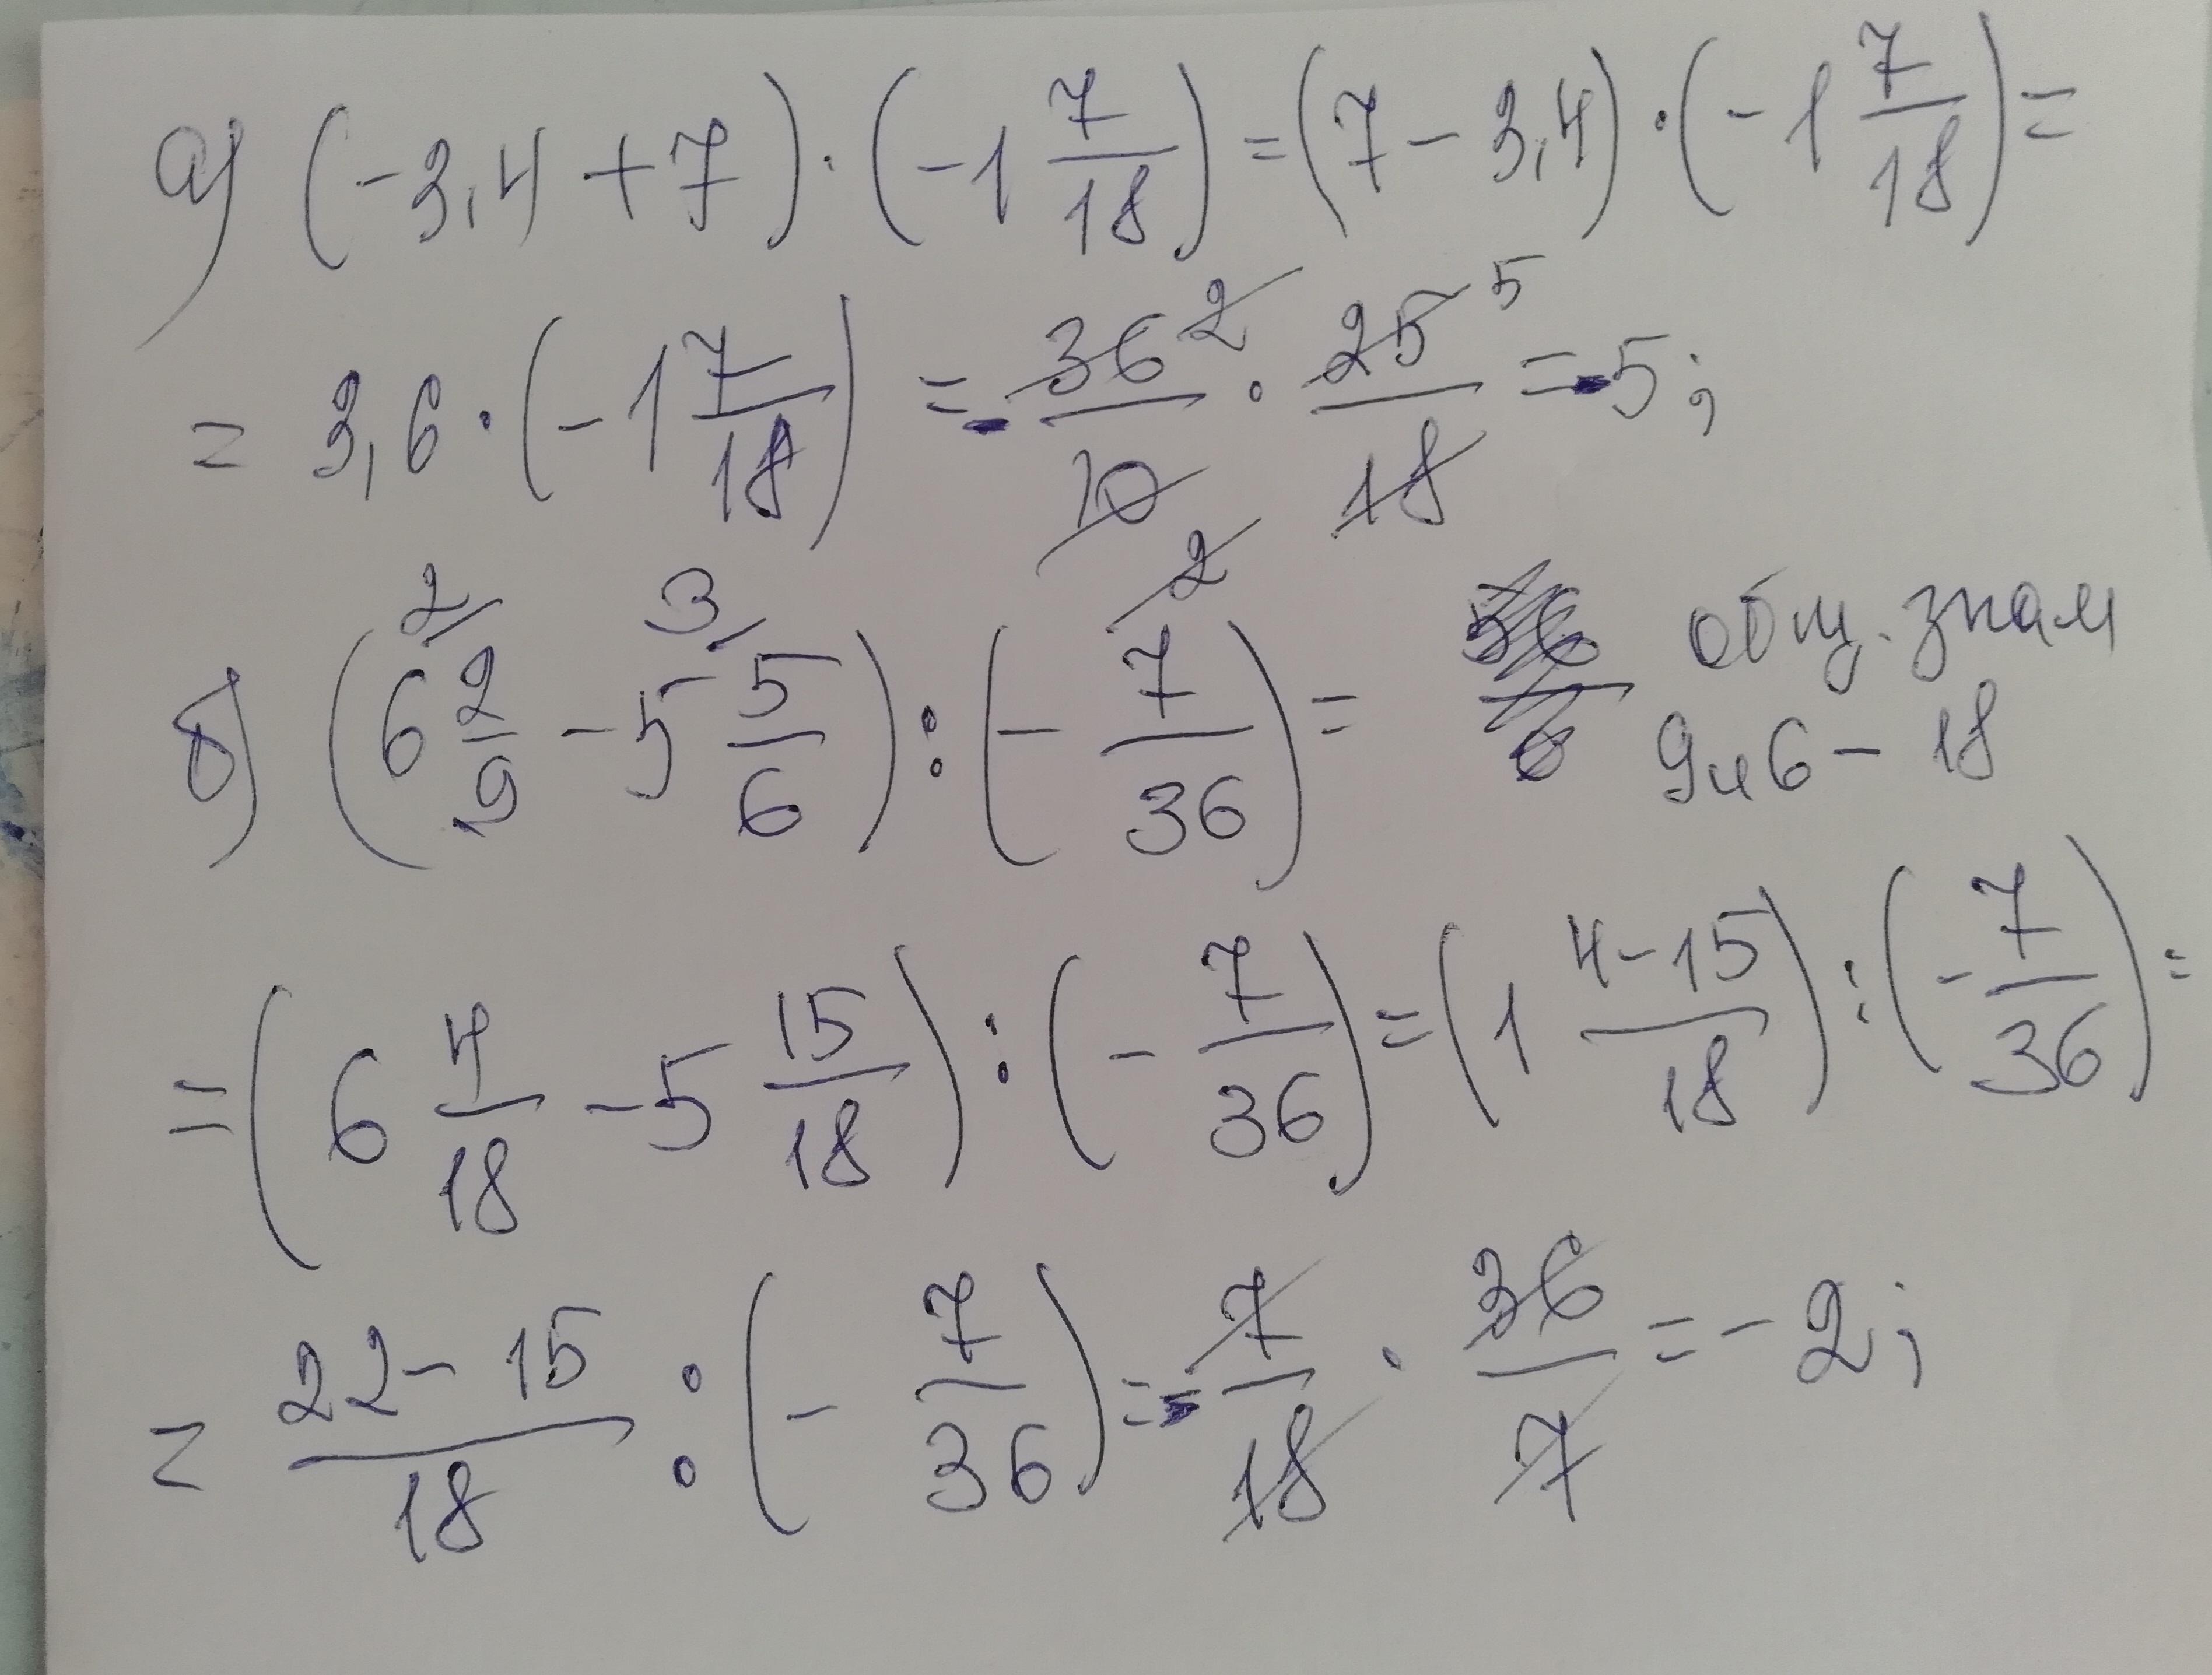 а) (-3,4+7)·(-1 7/18)=(7-3,4)·(-1 7/18)=
=3,6·(-1 7/18)=-36²/10·25⁵/18=-5;
2
2/ 3/
б) (6 2/9-5 5/6):(-7/36)= общ. знам
9и6-18
=(6 4/18-5 15/18):(-7/36)=(1 4-15/18):(-7/36)=
=22-15/18:(-7/36)=-7/18·36/7=-2;